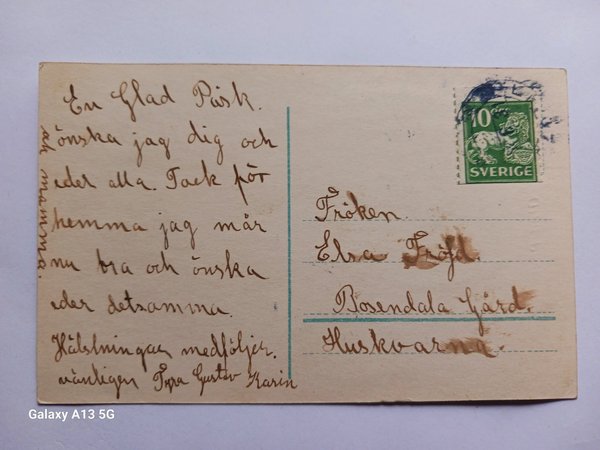 En Glad Påsk.
önska jag dig och
eder alla. Tack för
hemma jag mår
nu bra och önska
eder detsamma.
Hälsningar medföljer.
vänligen Tyra Gustav Karin
av mamma.
10
SVERIGE
Fröken.
Elsa Fröjd.
Rosendala Gård.
Huskvarna.
Galaxy A13 5G